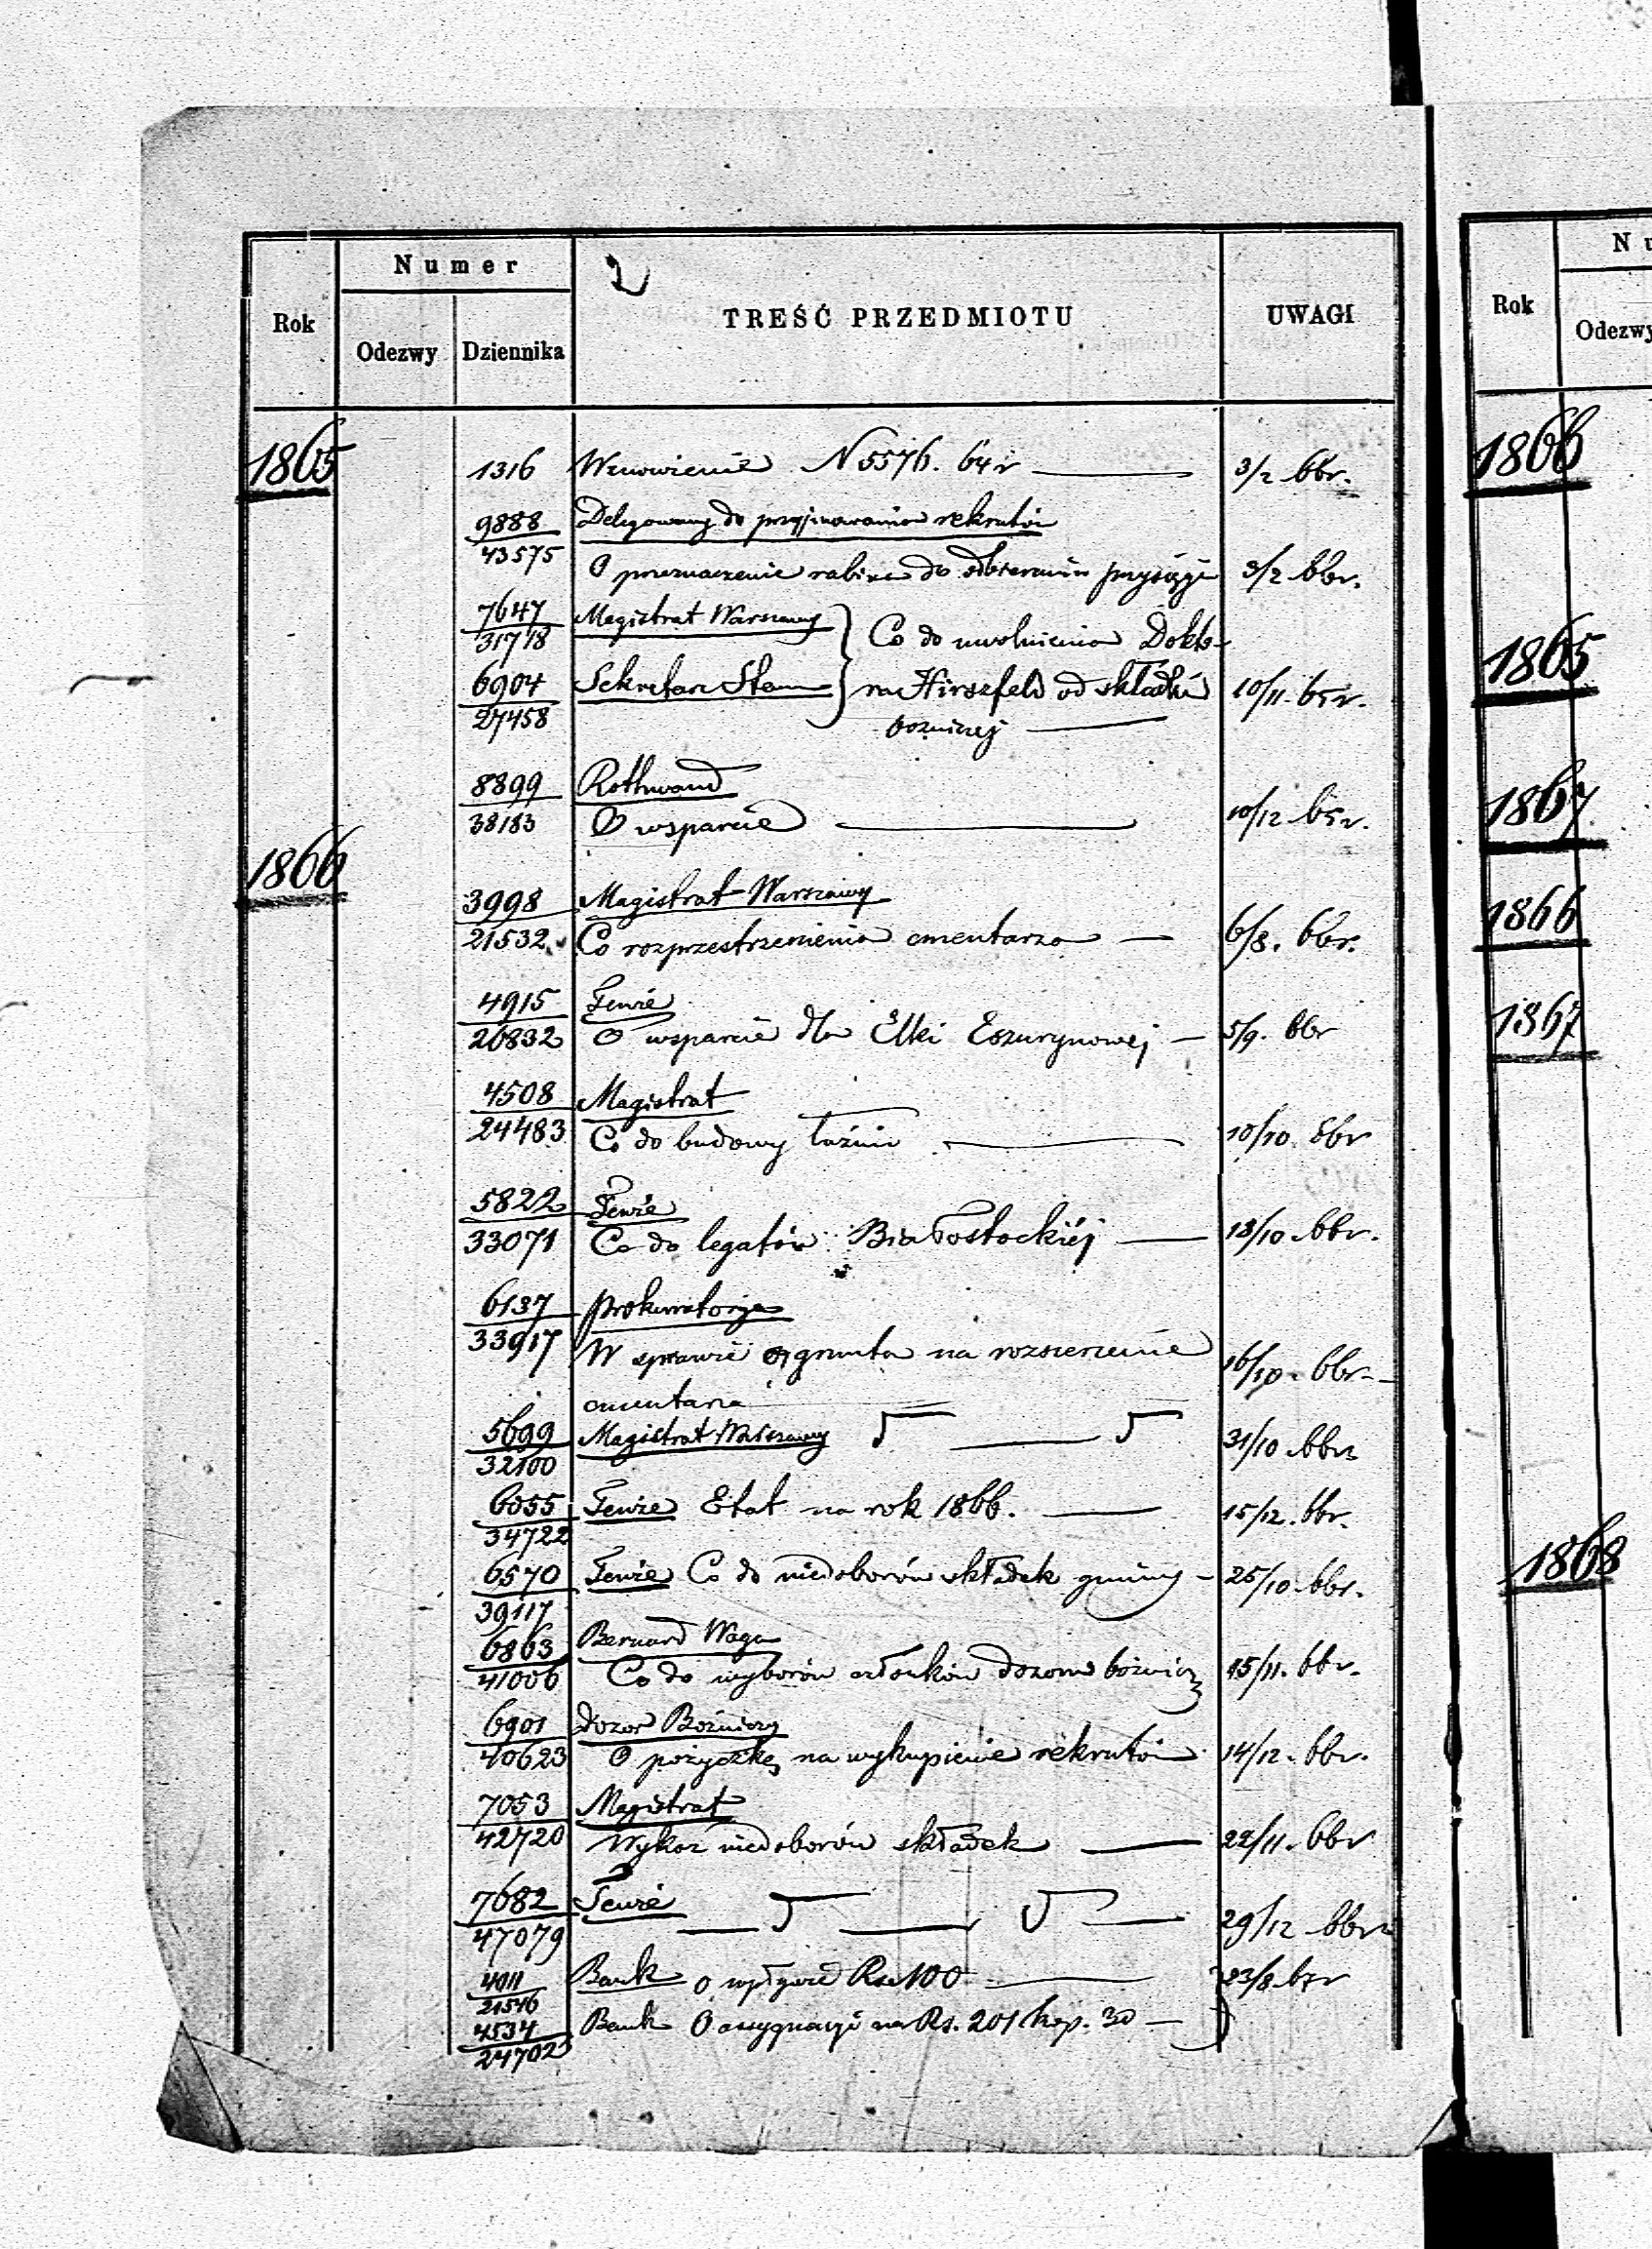 Numer
2
N u
Rok
Odezwy
Dziennika
TREŚĆ PRZEDMIOTU
UWAGI
Rok
Odezwy
1865
1316 Wznowienie N 5576. 64 r 3/2 66r.
1866
9888 Delegowany do przyjmowania rekrutów
43575 O przeznaczenie rabina do odbierania przysięgi 3/2 66r.
7647 Magistrat Warszawy
31718 Co do uwolnienia Dokto-
1865
6904 Sekretarz Stanu ra Hirszfeld od składki 10/11. 65 r.
27458 bożniczej
8899 Rothwand
38183 O wsparcie 10/12 65 r.
1867
1866
3998 Magistrat Warszawy
21532 Co rozprzestrzenienia cmentarza 6/8. 66r.
1866
4915 Tenże
26832 O wsparcie dla Elki Eszurynowej 5/9. 66r
1867
4508 Magistrat
24483 Co do budowy łaźni 10/10 66r
5822 Tenże
33071 Co do legatów Białostockiéj 13/10 66r.
6137 Prokuratorja
33917 W sprawie o grunta na rozszerzenie 16/10. 66r.
cmentarza
5699 Magistrat Warszawy 31/10 66r.
32100
6055 Tenże Etat na rok 1866. 15/12. 66r.
34722
1868
6570 Tenże Co do niedoborów składek gminy 25/10 66r.
39117
6863 Bernard Waga
41006 Co do wyborów członków dozoru bożnicz 15/11. 66r.
6901 Dozor Bożniczy
40623 O pożyczkę na wykupienie rekrutów 14/12. 66r.
7053 Magistrat
42720 Wykaz niedoborów składek 22/11. 66r
7682 Tenże 29/12 66r
47079
4011 Bank o wpływie Rs. 100 23/8 67r
21546
4534 Bank O assygnacyi na Rs. 201 kop. 30
24702